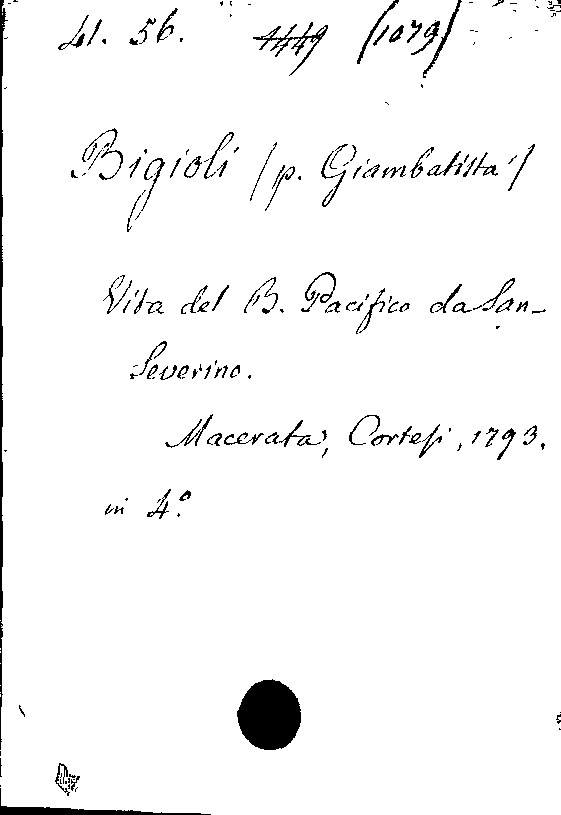 41. 56. 1449 (1079)
Bigioli (p. Giambatista)
Vita del B. Pacifico da San-
Severino.
Macerata, Cortesi, 1793.
in 4.º